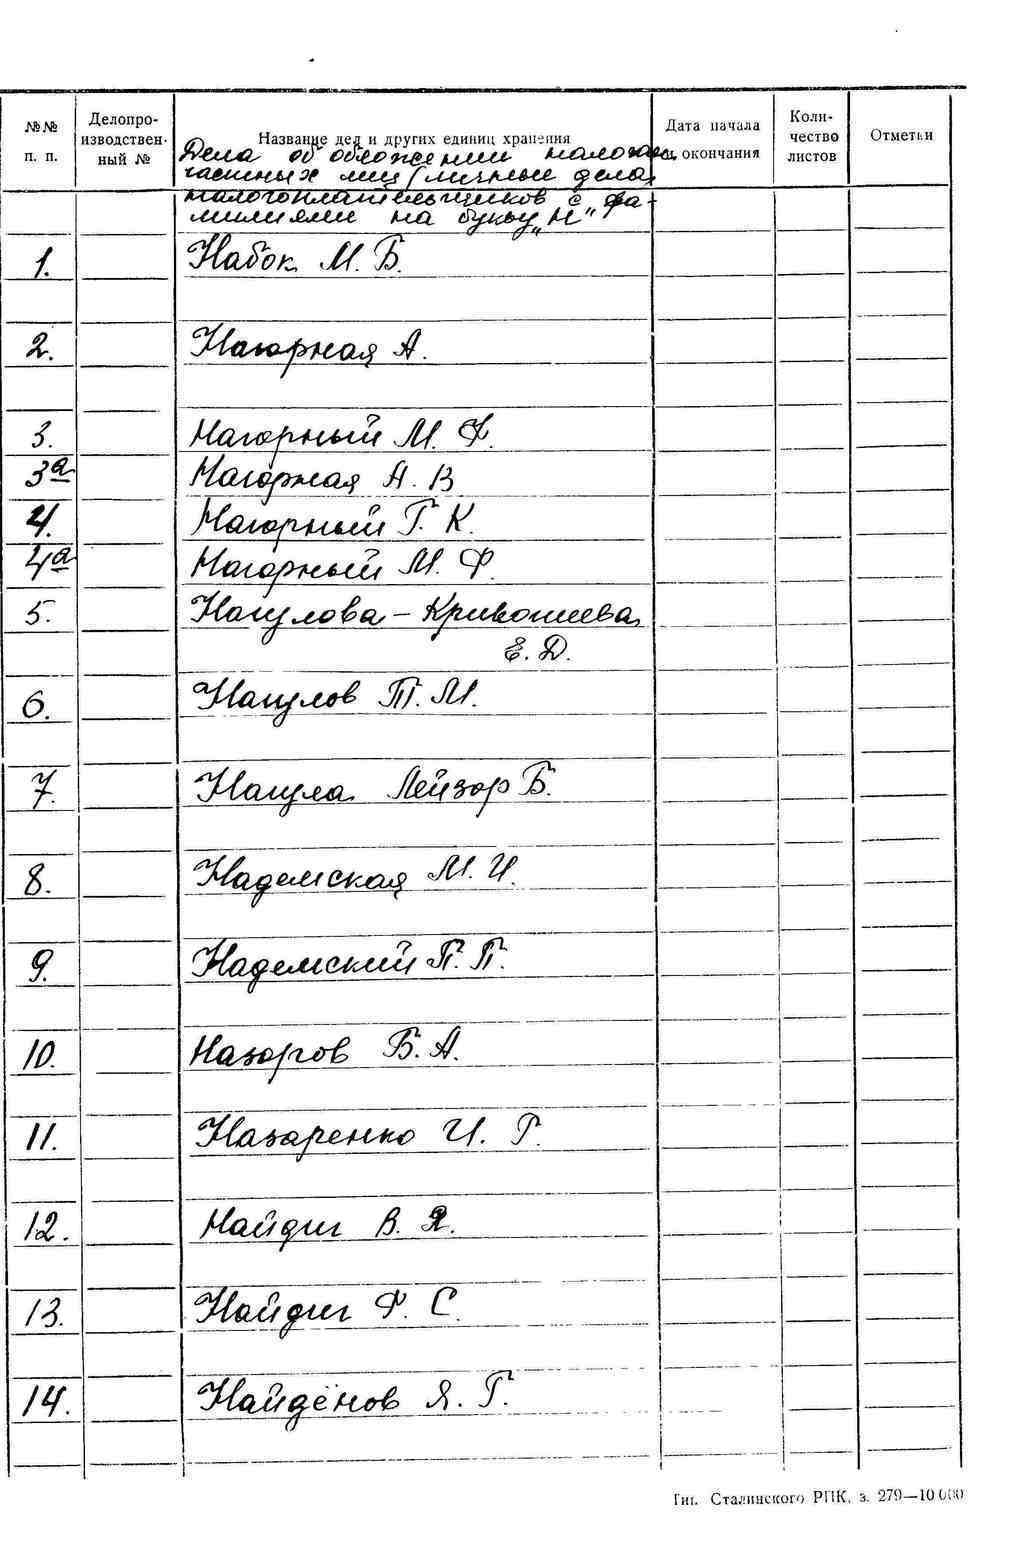 №№ п. п.
Делопро-
изводствен-
ный №
Название дел и других единиц хранения
Дата начала
окончания
Коли-
чество
листов
Отметки
Дела об обложении налогом
частных лиц (личные дела
налогоплательщиков с фа-
милиями на букву „Н"
1. Набок М. Б.
2. Нагорная А.
3. Нагорный М. Ф.
3а Нагорная А. В
4. Нагорный Г. К.
4а Нагорный М. Ф.
5. Нагулова - Кривошеева
Е. Д.
6. Нагулов Т. М.
7. Нагула Лейзор Б.
8. Надемская М. И.
9. Надемский П. П.
10. Назаров Б. А.
11. Назаренко И. Г.
12. Найдич В. Я.
13. Найдич Ф. С.
14. Найдёнов Я. Г.
Тип. Сталинского РПК. з. 279—10 000